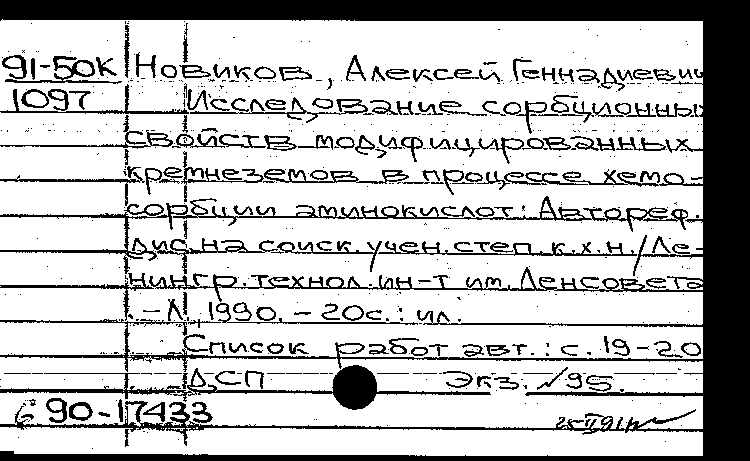 91-50к Новиков, Алексей Геннадиевич
1097 Исследование сорбционных
свойств модифицированных
кремнеземов в процессе хемо-
сорбции аминокислот: Автореф.
дис. на соиск. учен. степ. к.х.н./Ле-
нингр. технол. ин-т им. Ленсовета
.-Л., 1990. - 20с.: ил.
Список работ авт.: с. 19-20
ДСП Экз. №95.
6 90-17433